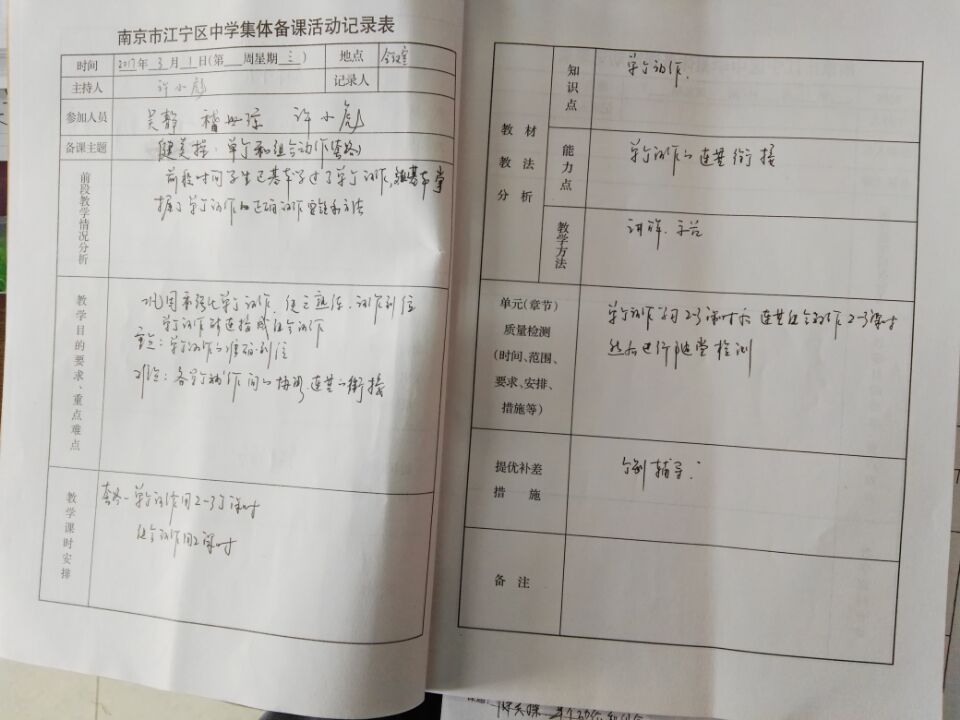 南京市江宁区中学集体备课活动记录表
时间 2017年3月1日(第 周星期三) 地点 会议室
主持人 许小彪 记录人
参加人员 吴静 许小彪
备课主题 健美操:单个和组合动作(套路)
前段教学情况分析
前段时间学生已基本学过了单个动作,基本掌
握了单个动作的正确动作要领和方法
教学目的要求、重点难点
巩固和强化单个动作,使之熟练、动作到位
单个动作能连接成组合动作
重点:单个动作的准确到位
难点:各单个动作间的协调连贯的衔接
教学课时安排
套路一单个动作用2-3个课时
组合动作用2课时
教材教法分析
知识点 单个动作.
能力点 单个动作的连贯衔接
教学方法 讲解.示范
单元(章节)
质量检测
(时间、范围、
要求、安排、
措施等)
单个动作学习2-3课时 连贯组合动作2-3课时
然后进行随堂检测
提优补差
措 施
个别辅导
备 注
健美操